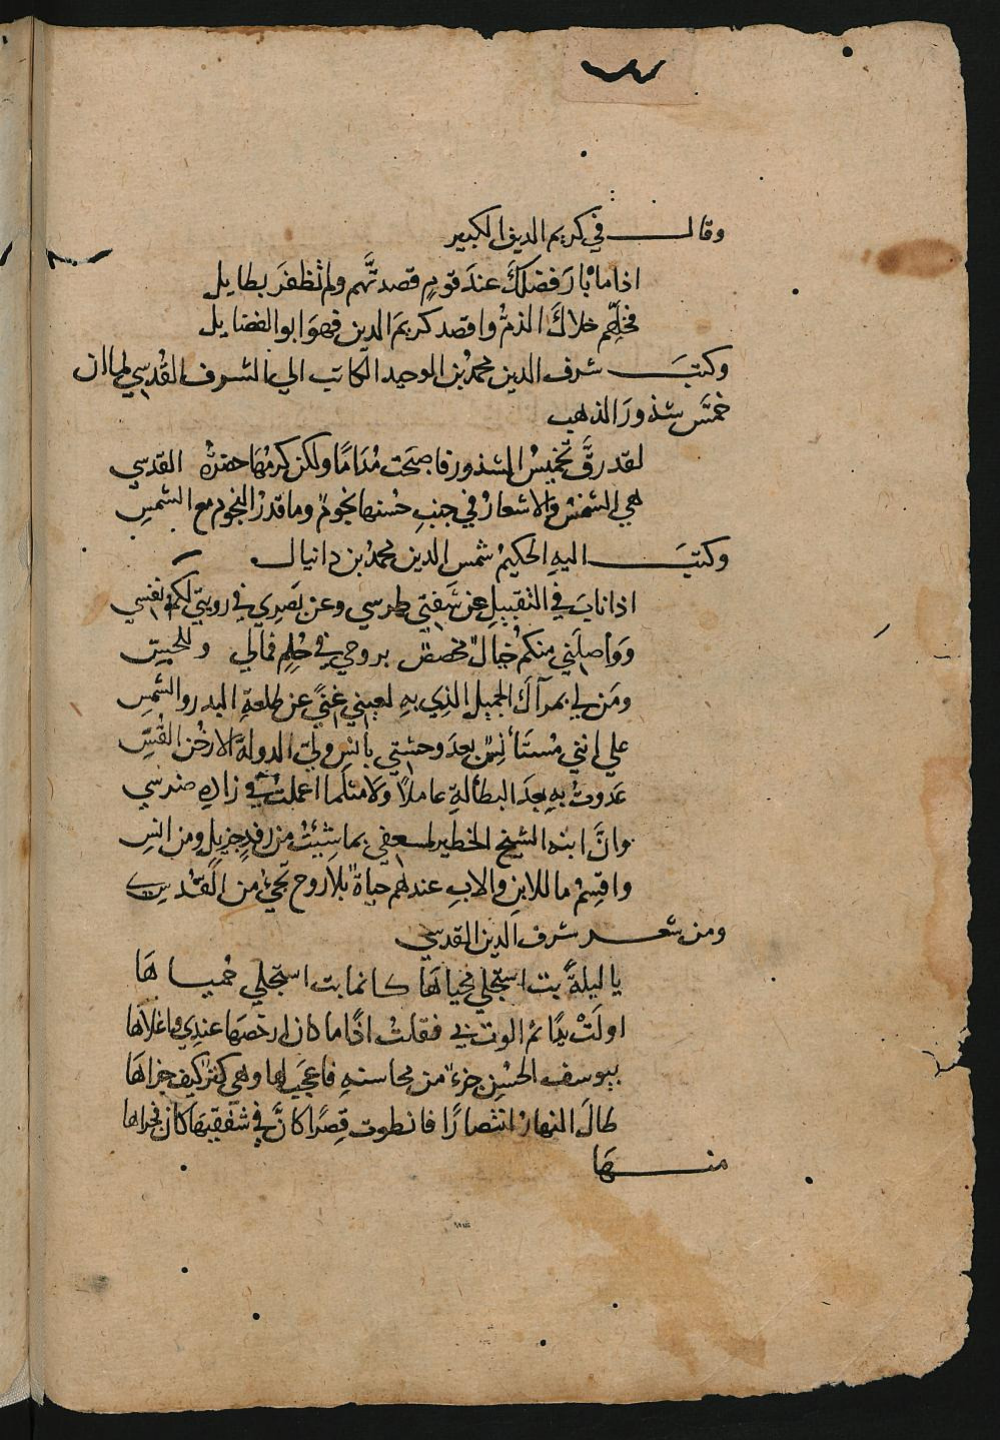 وقال في كريم الدين الكبير
اذا ما بار فضلك عند قوم قصدتهم ولم تظفر بطايل
فخلهم خلاك الذم واقصد كريم الدين فهو ابو الفضايل
وكتب شرف الدين محمد بن الوحيد الكاتب الي الشرف القدسي لما ان
خمس شذور الذهب
لقد رق تخميس الشذور فاصبحت مداما ولكن كرمها حضرة القدسي
هي الشمس والاشعار في جنب حسنها نجوم وما قدر النجوم مع الشمس
وكتب اليه الحكيم شمس الدين محمد بن دانيال
اذا ناب في التقبيل عن شفتي طرسي وعن بصري في رويتي لكم نفسي
وواصلني منكم خيال مخصص بروحي في حلم فمالي وللحس
ومن لي بمرآك الجميل الذي به لعيني غني عن طلعة البدر والشمس
علي انني مستأنس بعد وحشتي بانس ولي الدولة الارخن القس
غدوت به بعد البطالة عاملا ولا مثلما اعملت في زاده ضرسي
وان ابنه الشيخ الخطير لمسعفي بما شئت من رفد جزيل ومن انس
واقسم ما للابن والاب عندهم حياة بلا روح تجي من القدس
ومن شعر شرف الدين القدسي
يا ليلة بت استجلي محياها كانما بت استجلي حمياها
اولت يدا ثم الوت بي فقلت اذا ما كان ارخصها عندي واغلاها
بيوسف الحسن جزء من محاسنه فاعجب لها وهي كثر كيف جزاها
طال النهار انتصارا فانطوت قصرا كان في شفقيها كان فجراها
منها